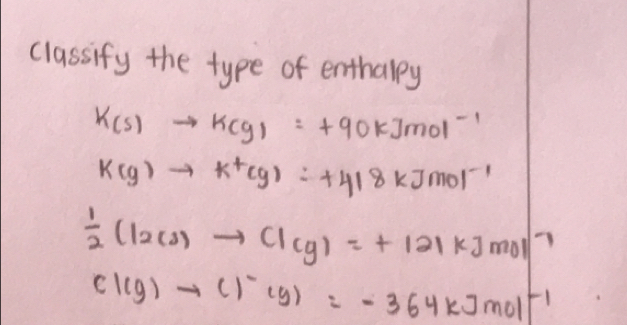 Classify the type of enthalpy
K(s) → K(g) = +90kJmol⁻¹
K(g) → K⁺(g) = +418 kJmol⁻¹
½ Cl₂(s) → Cl(g) = + 121 kJmol⁻¹
Cl(g) → Cl⁻(g) = -364kJmol⁻¹